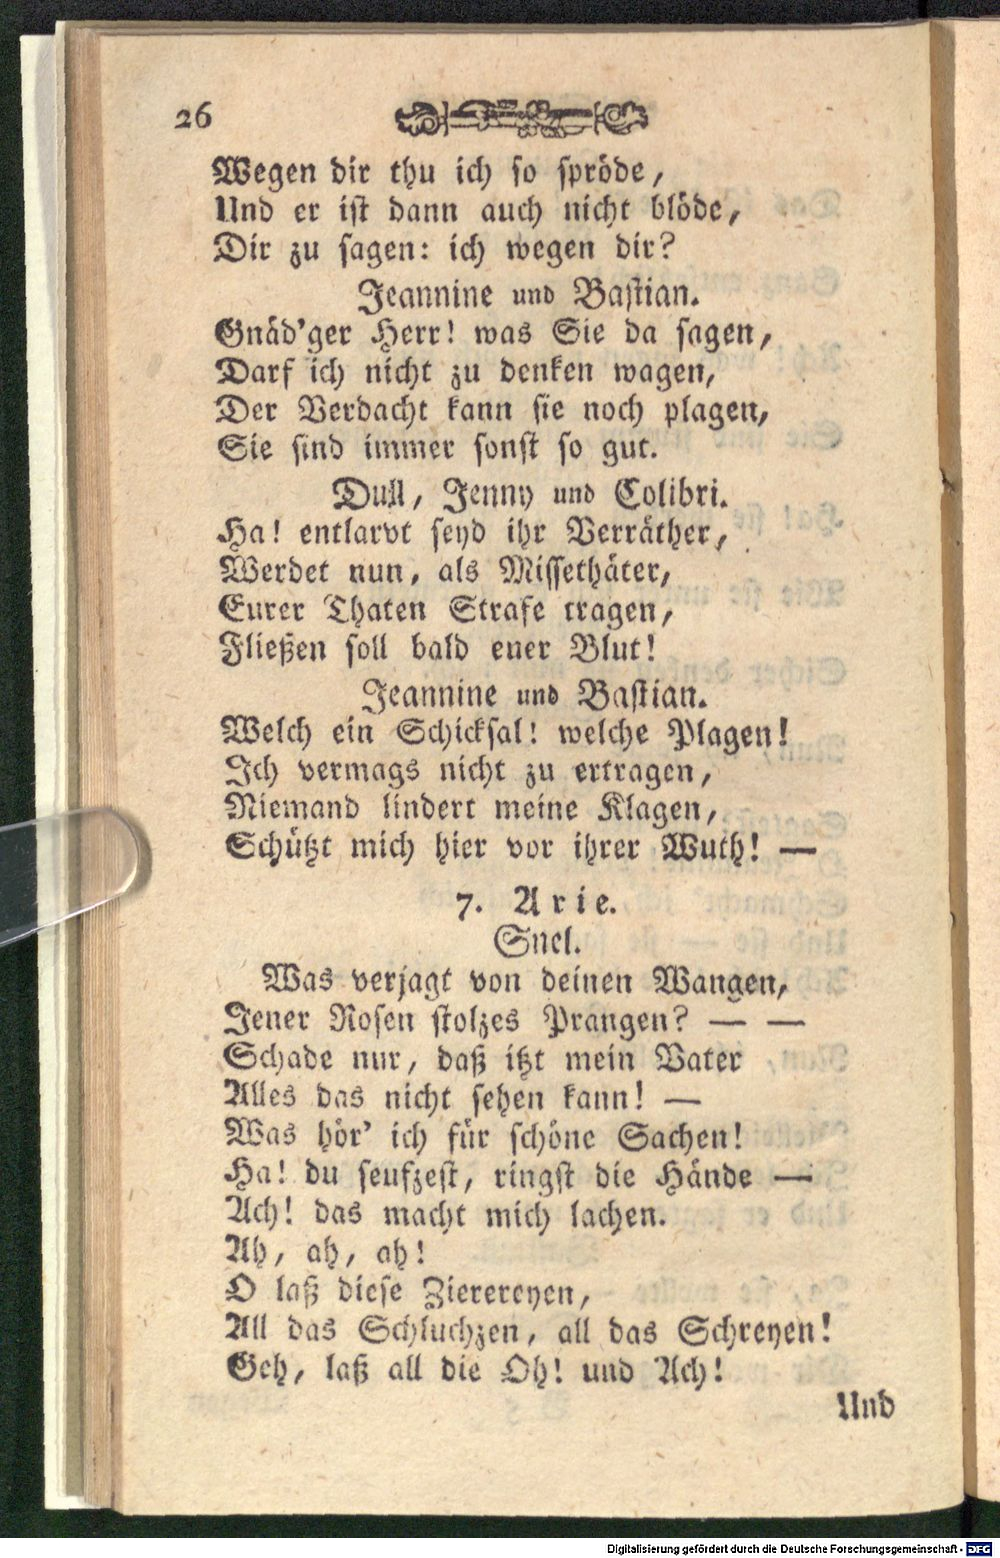 26
Wegen dir thu ich so spröde,
Und er ist dann auch nicht blöde,
Dir zu sagen: ich wegen dir?
Jeannine und Bastian.
Gnäd'ger Herr! was Sie da sagen,
Darf ich nicht zu denken wagen,
Der Verdacht kann sie noch plagen,
Sie sind immer sonst so gut.
Dull, Jenny und Colibri.
Ha! entlarvt seyd ihr Verräther,
Werdet nun, als Missethäter,
Eurer Thaten Strafe tragen,
Fließen soll bald euer Blut!
Jeannine und Bastian.
Welch ein Schicksal! welche Plagen!
Ich vermags nicht zu ertragen,
Niemand lindert meine Klagen,
Schützt mich hier vor ihrer Wuth! —
7. Arie.
Snel.
Was verjagt von deinen Wangen,
Jener Rosen stolzes Prangen? — —
Schade nur, daß itzt mein Vater
Alles das nicht sehen kann! —
Was hör' ich für schöne Sachen!
Ha! du seufzest, ringst die Hände —
Ach! das macht mich lachen.
Ah, ah, ah!
O laß diese Zierereyen,
All das Schluchzen, all das Schreyen!
Geh, laß all die Oh! und Ach!
Und
Digitalisierung gefördert durch die Deutsche Forschungsgemeinschaft - DFG